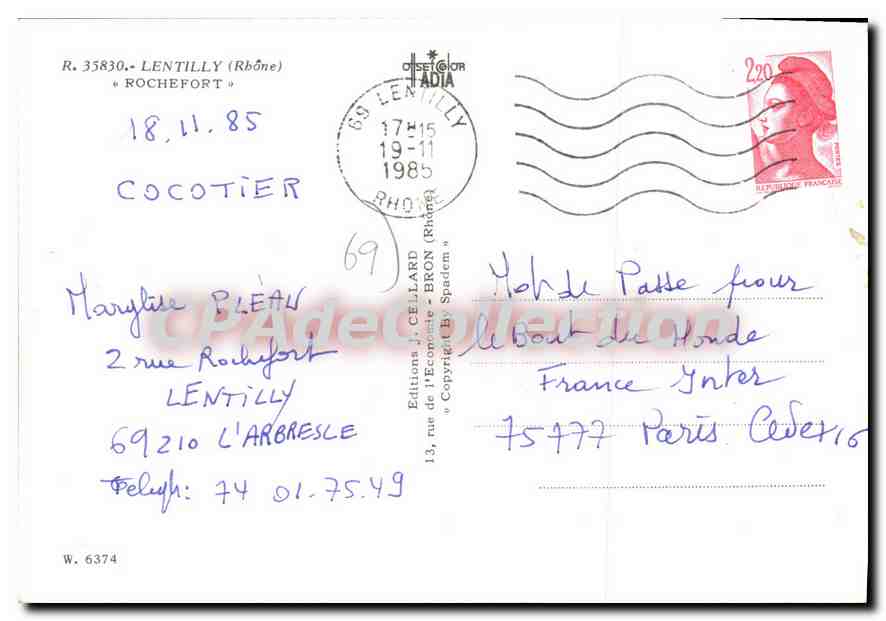 R. 35830.- LENTILLY (Rhône)
« ROCHEFORT »
18.11.85
COCOTIER
Marylise PLÉAU
2 rue Rochefort
LENTILLY
69210 L'ARBRESLE
Teleph: 74 01.75.49
W. 6374
OFFSET COLOR
IADIA
69 LENTILLY
17H15
19-11
1985
RHONE
69
Editions J. CELLARD
13, rue de l'Economie - BRON (Rhône)
« Copyright By Spadem »
2,20
POSTES
REPUBLIQUE FRANÇAISE
Mot de Passe pour
le Bout du Monde
France Inter
75777 Paris Cedex 16
CPAdeCollection